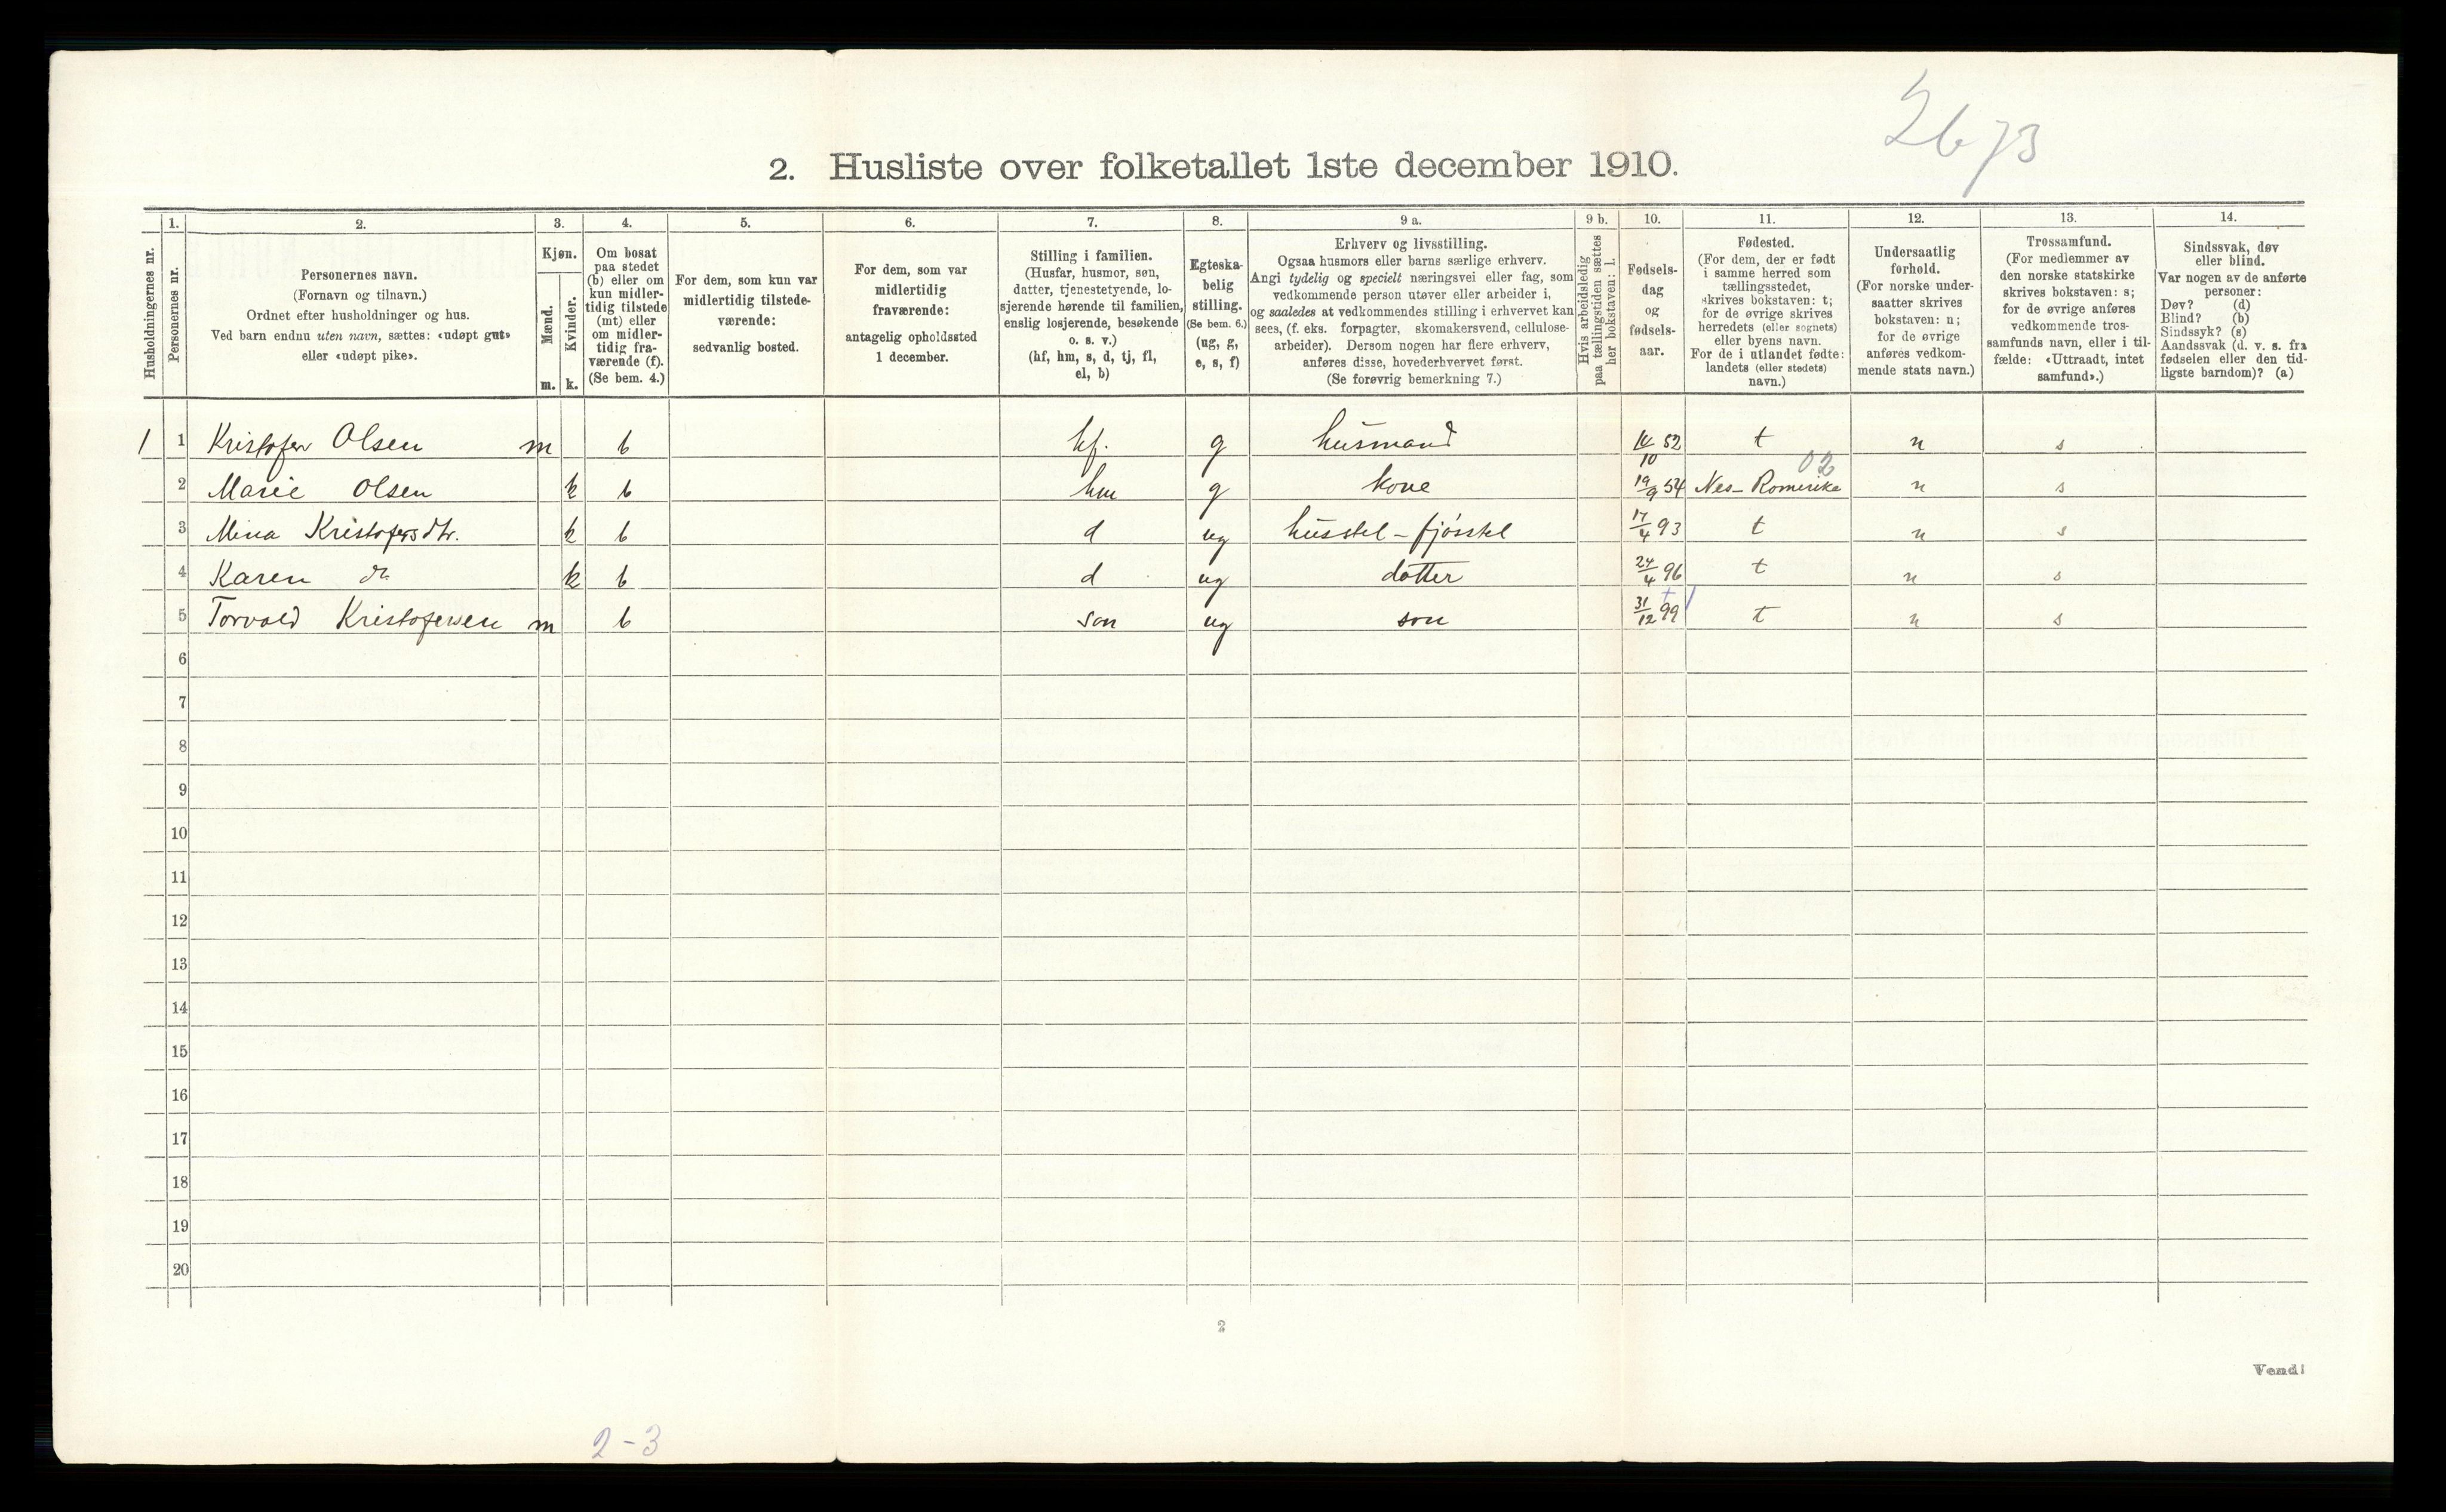 2673
2. Husliste over folketallet 1ste december 1910.
Husholdningernes nr.
1.
Personernes nr.
2.
Personernes navn.
(Fornavn og tilnavn.)
Ordnet efter husholdninger og hus.
Ved barn endnu uten navn, sættes: «udøpt gut»
eller «udøpt pike».
3.
Kjøn.
Mænd.
Kvinder.
m. k.
4.
Om bosat
paa stedet
(b) eller om
kun midler-
tidig tilstede
(mt) eller
om midler-
tidig fra-
værende (f).
(Se bem. 4.)
5.
For dem, som kun var
midlertidig tilstede-
værende:
sedvanlig bosted.
6.
For dem, som var
midlertidig
fraværende:
antagelig opholdssted
1 december.
7.
Stilling i familien.
(Husfar, husmor, søn,
datter, tjenestetyende, lo-
sjerende hørende til familien,
enslig losjerende, besøkende
o. s. v.)
(hf, hm, s, d, tj, fl,
el, b)
8.
Egteska-
belig
stilling.
(Se bem. 6.)
(ug, g,
e, s, f)
9 a.
Erhverv og livsstilling.
Ogsaa husmors eller barns særlige erhverv.
Angi tydelig og specielt næringsvei eller fag, som
vedkommende person utøver eller arbeider i,
og saaledes at vedkommendes stilling i erhvervet kan
sees, (f. eks. forpagter, skomakersvend, cellulose-
arbeider). Dersom nogen har flere erhverv,
anføres disse, hovederhvervet først.
(Se forøvrig bemerkning 7.)
9 b.
Hvis arbeidsledig
paa tællingstiden sættes
her bokstaven: l.
10.
Fødsels-
dag
og
fødsels-
aar.
11.
Fødested.
(For dem, der er født
i samme herred som
tællingsstedet,
skrives bokstaven: t;
for de øvrige skrives
herredets (eller sognets)
eller byens navn.
For de i utlandet fødte:
landets (eller stedets)
navn.)
12.
Undersaatlig
forhold.
(For norske under-
saatter skrives
bokstaven: n;
for de øvrige
anføres vedkom-
mende stats navn.)
13.
Trossamfund.
(For medlemmer av
den norske statskirke
skrives bokstaven: s;
for de øvrige anføres
vedkommende tros-
samfunds navn, eller i til-
fælde: «Uttraadt, intet
samfund».)
14.
Sindssvak, døv
eller blind.
Var nogen av de anførte
personer:
Døv? (d)
Blind? (b)
Sindssyk? (s)
Aandssvak (d. v. s. fra
fødselen eller den tid-
ligste barndom)? (a)
1 1 Kristofer Olsen m b hf. g husmand 14/10 52 t n s
02
2 Marie Olsen k b hm g kone 19/9 54 Nes-Romerike n s
3 Mina Kristofersdtr. k b d ug husstel-fjösstel 17/4 93 t n s
4 Karen do k b d ug dotter 24/4 96 t n s
5 Torvald Kristofersen m b son ug son 31/12 99 t n s
6
7
8
9
10
11
12
13
14
15
16
17
18
19
20
2
Vend!
2-3